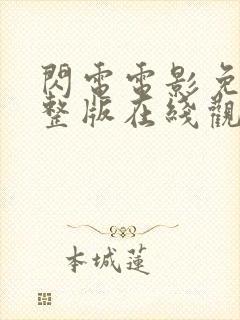 閃電電影免
整版在綫觀
本城蓮